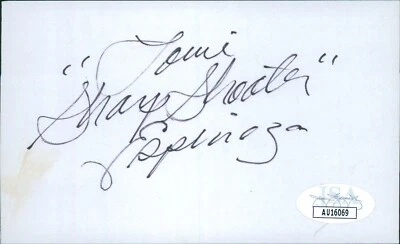 Louie
"Sharp Shooter"
Espinoza
JSA
AU16069